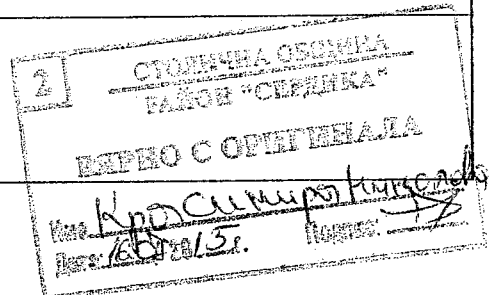 2
СТОЛИЧНА ОБЩИНА
РАЙОН "СЕРДИКА"
ВЯРНО С ОРИГИНАЛА
Име: Красимира
Дата: 15 г. Подпис: